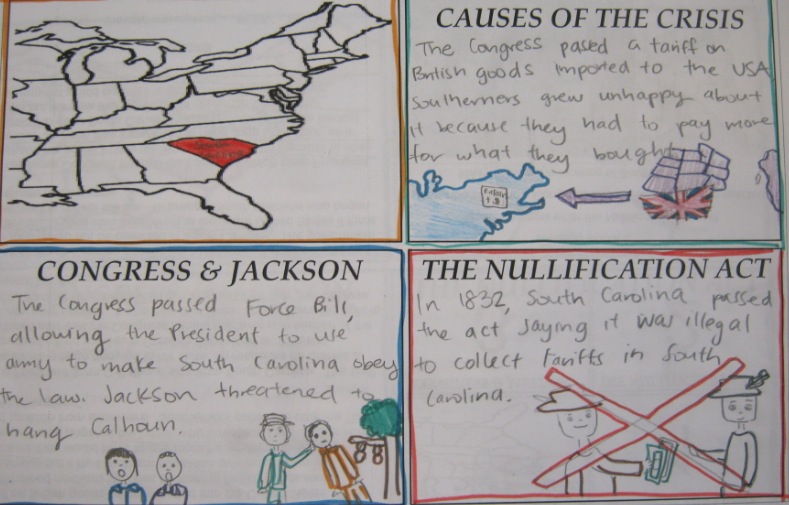 South
Carolina
CAUSES OF THE CRISIS
The Congress pased a tariff on
British goods imported to the USA
Southerners grew unhappy about
it because they had to pay more
for what they bought
CONGRESS & JACKSON
The Congress passed Force Bill,
allowing the President to use
army to make South Carolina obey
the law. Jackson threatened to
hang Calhoun.
THE NULLIFICATION ACT
In 1832, South Carolina passed
the act saying it was illegal
to collect tariffs in South
Carolina.